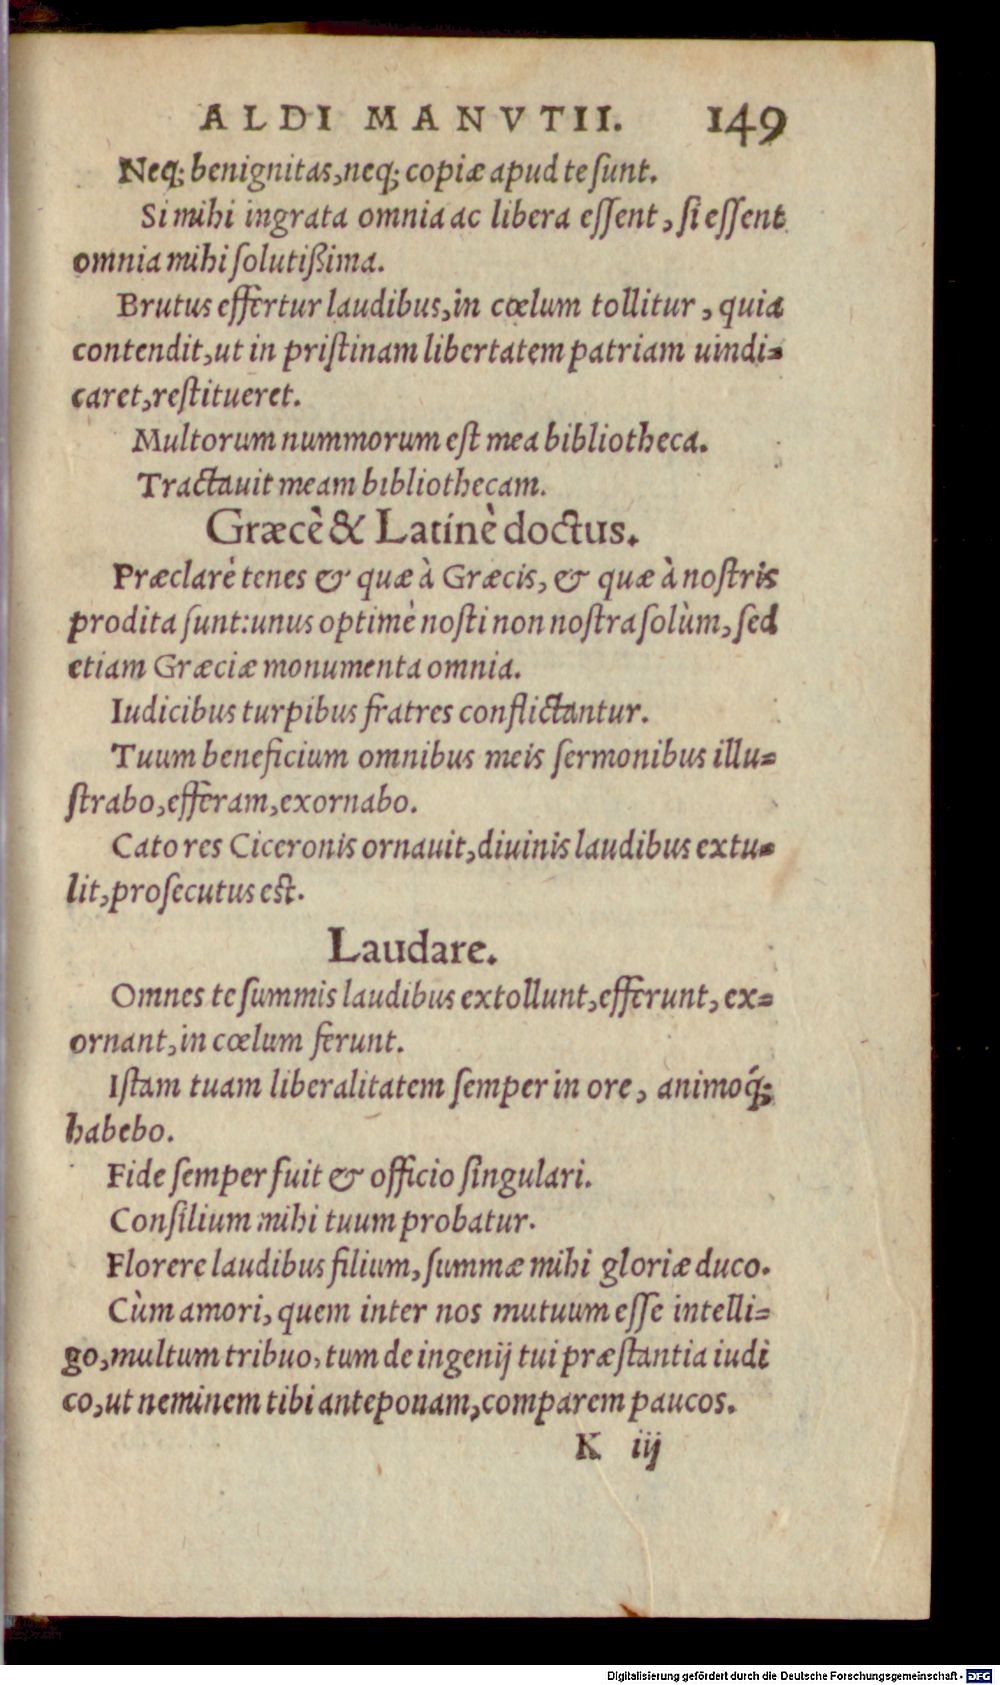 ALDI MANVTII. 149
Neq; benignitas, neq; copiæ apud te sunt.
Si mihi ingrata omnia ac libera essent, si essent
omnia mihi solutißima.
Brutus effertur laudibus, in cœlum tollitur, quia
contendit, ut in pristinam libertatem patriam uindi-
caret, restitueret.
Multorum nummorum est mea bibliotheca.
Tractauit meam bibliothecam.
Græcè & Latinè doctus.
Præclarè tenes & quæ à Græcis, & quæ à nostris
prodita sunt: unus optimè nosti non nostra solùm, sed
etiam Græciæ monumenta omnia.
Iudicibus turpibus fratres conflictantur.
Tuum beneficium omnibus meis sermonibus illu-
strabo, efferam, exornabo.
Cato res Ciceronis ornauit, diuinis laudibus extu-
lit, prosecutus est.
Laudare.
Omnes te summis laudibus extollunt, efferunt, ex-
ornant, in cœlum ferunt.
Istam tuam liberalitatem semper in ore, animoq́;
habebo.
Fide semper fuit & officio singulari.
Consilium mihi tuum probatur.
Florere laudibus filium, summæ mihi gloriæ duco.
Cùm amori, quem inter nos mutuum esse intelli-
go, multum tribuo, tum de ingenij tui præstantia iudi
co, ut neminem tibi anteponam, comparem paucos.
K iij
Digitalisierung gefördert durch die Deutsche Forschungsgemeinschaft - DFG